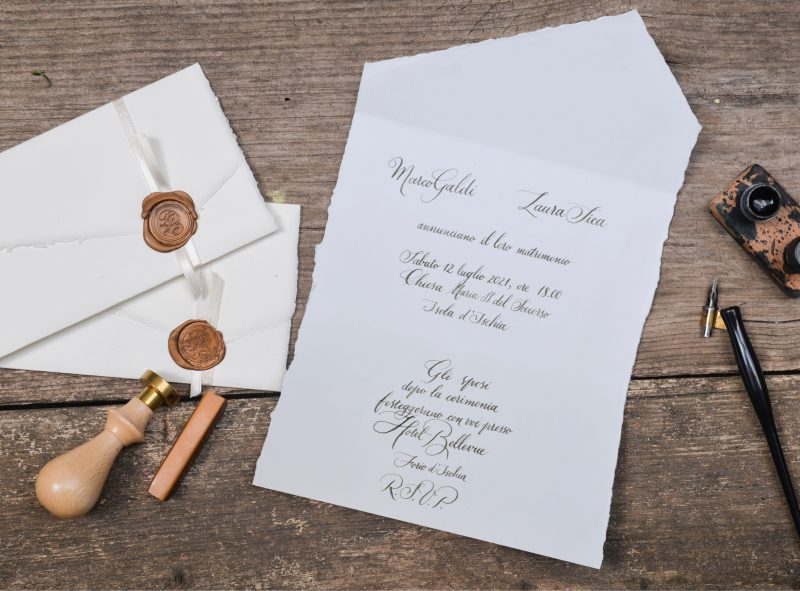 Marco Galdi Laura Sica
annunciano il loro matrimonio
Sabato 12 luglio 2021, ore 18.00
Chiesa Maria SS del Soccorso
Isola d'Ischia
Gli sposi
dopo la cerimonia
festeggerano con voi presso
Hotel Bellevue
Forio d'Ischia
R.S.V.P.